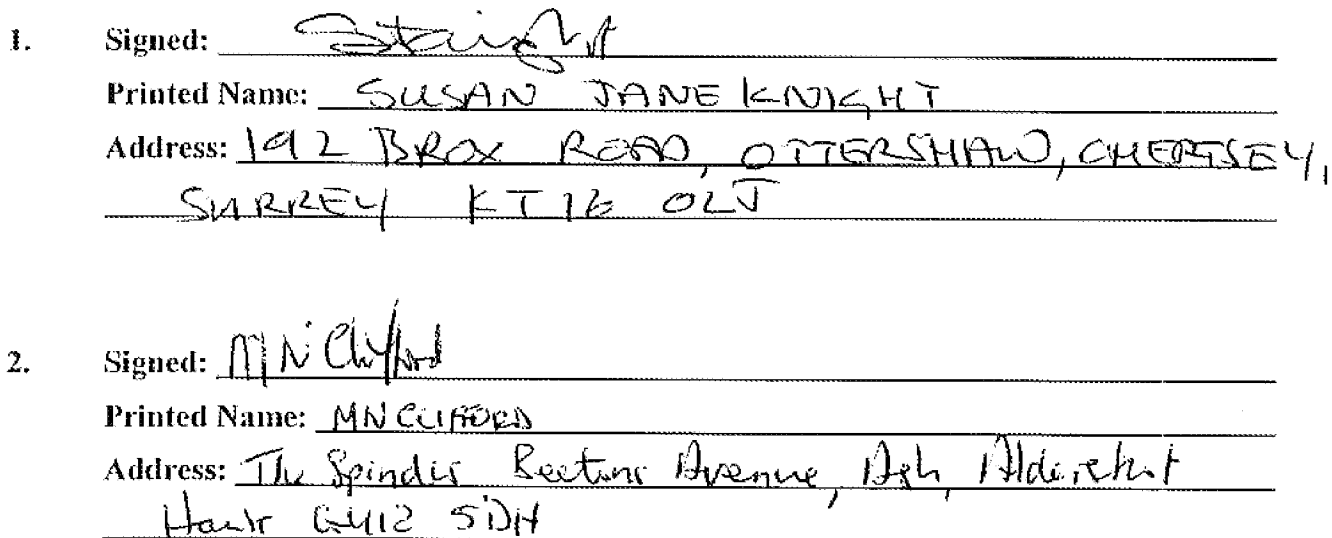 1. Signed:
Printed Name: SUSAN JANE KNIGHT
Address: 192 BROX ROAD, OTTERSHAW, CHERTSEY,
SURREY KT16 OLJ
2. Signed: MN Clifford
Printed Name: MN CLIFFORD
Address: The Avenue, Ash, Aldershot
Hants GU12 5DH